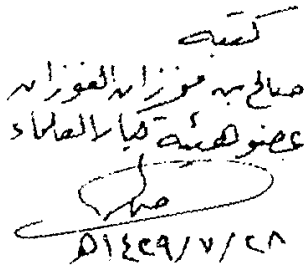 كتبه
صالح بن فوزان الفوزان
عضو هيئة كبار العلماء
١٤٢٩/٧/٢٨هـ